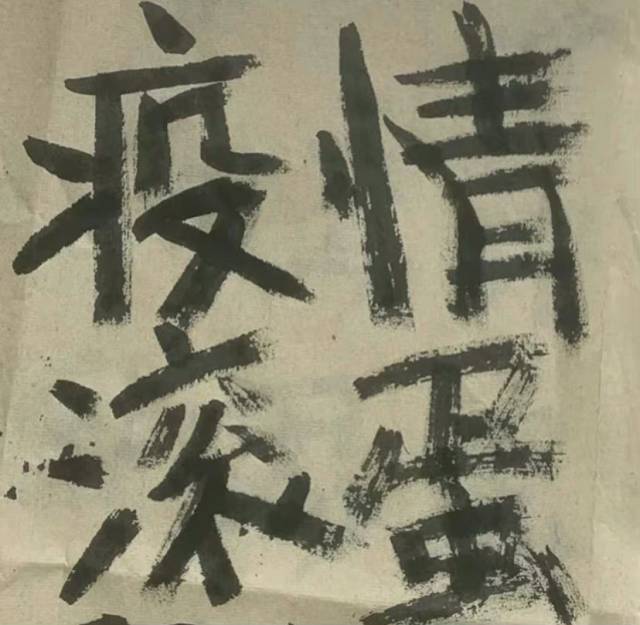 疫情
滚蛋